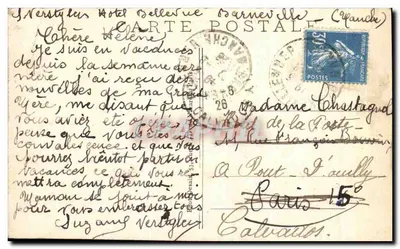 S Verstylen Hotel Bellevue Barneville (Manche)
CARTE POSTALE
Chère Hélène
Je suis en vacances
depuis la semaine der
nière j'ai reçu des
nouvelles de ma Grand
Mère, me disant que
vous aviez été
pense que vous êtes en
convalescence. et que vous
pourrez bientôt partir en
vacances ce qui vous re
mettra complètement.
Maman se joint à moi
pour vous embrasser tous
Suzanne Verstylen
30
POSTES
Madame Chastagnol
de la Poste
Rue François Bonvin
à Pont-D'ouilly
Paris 15e
Calvados.